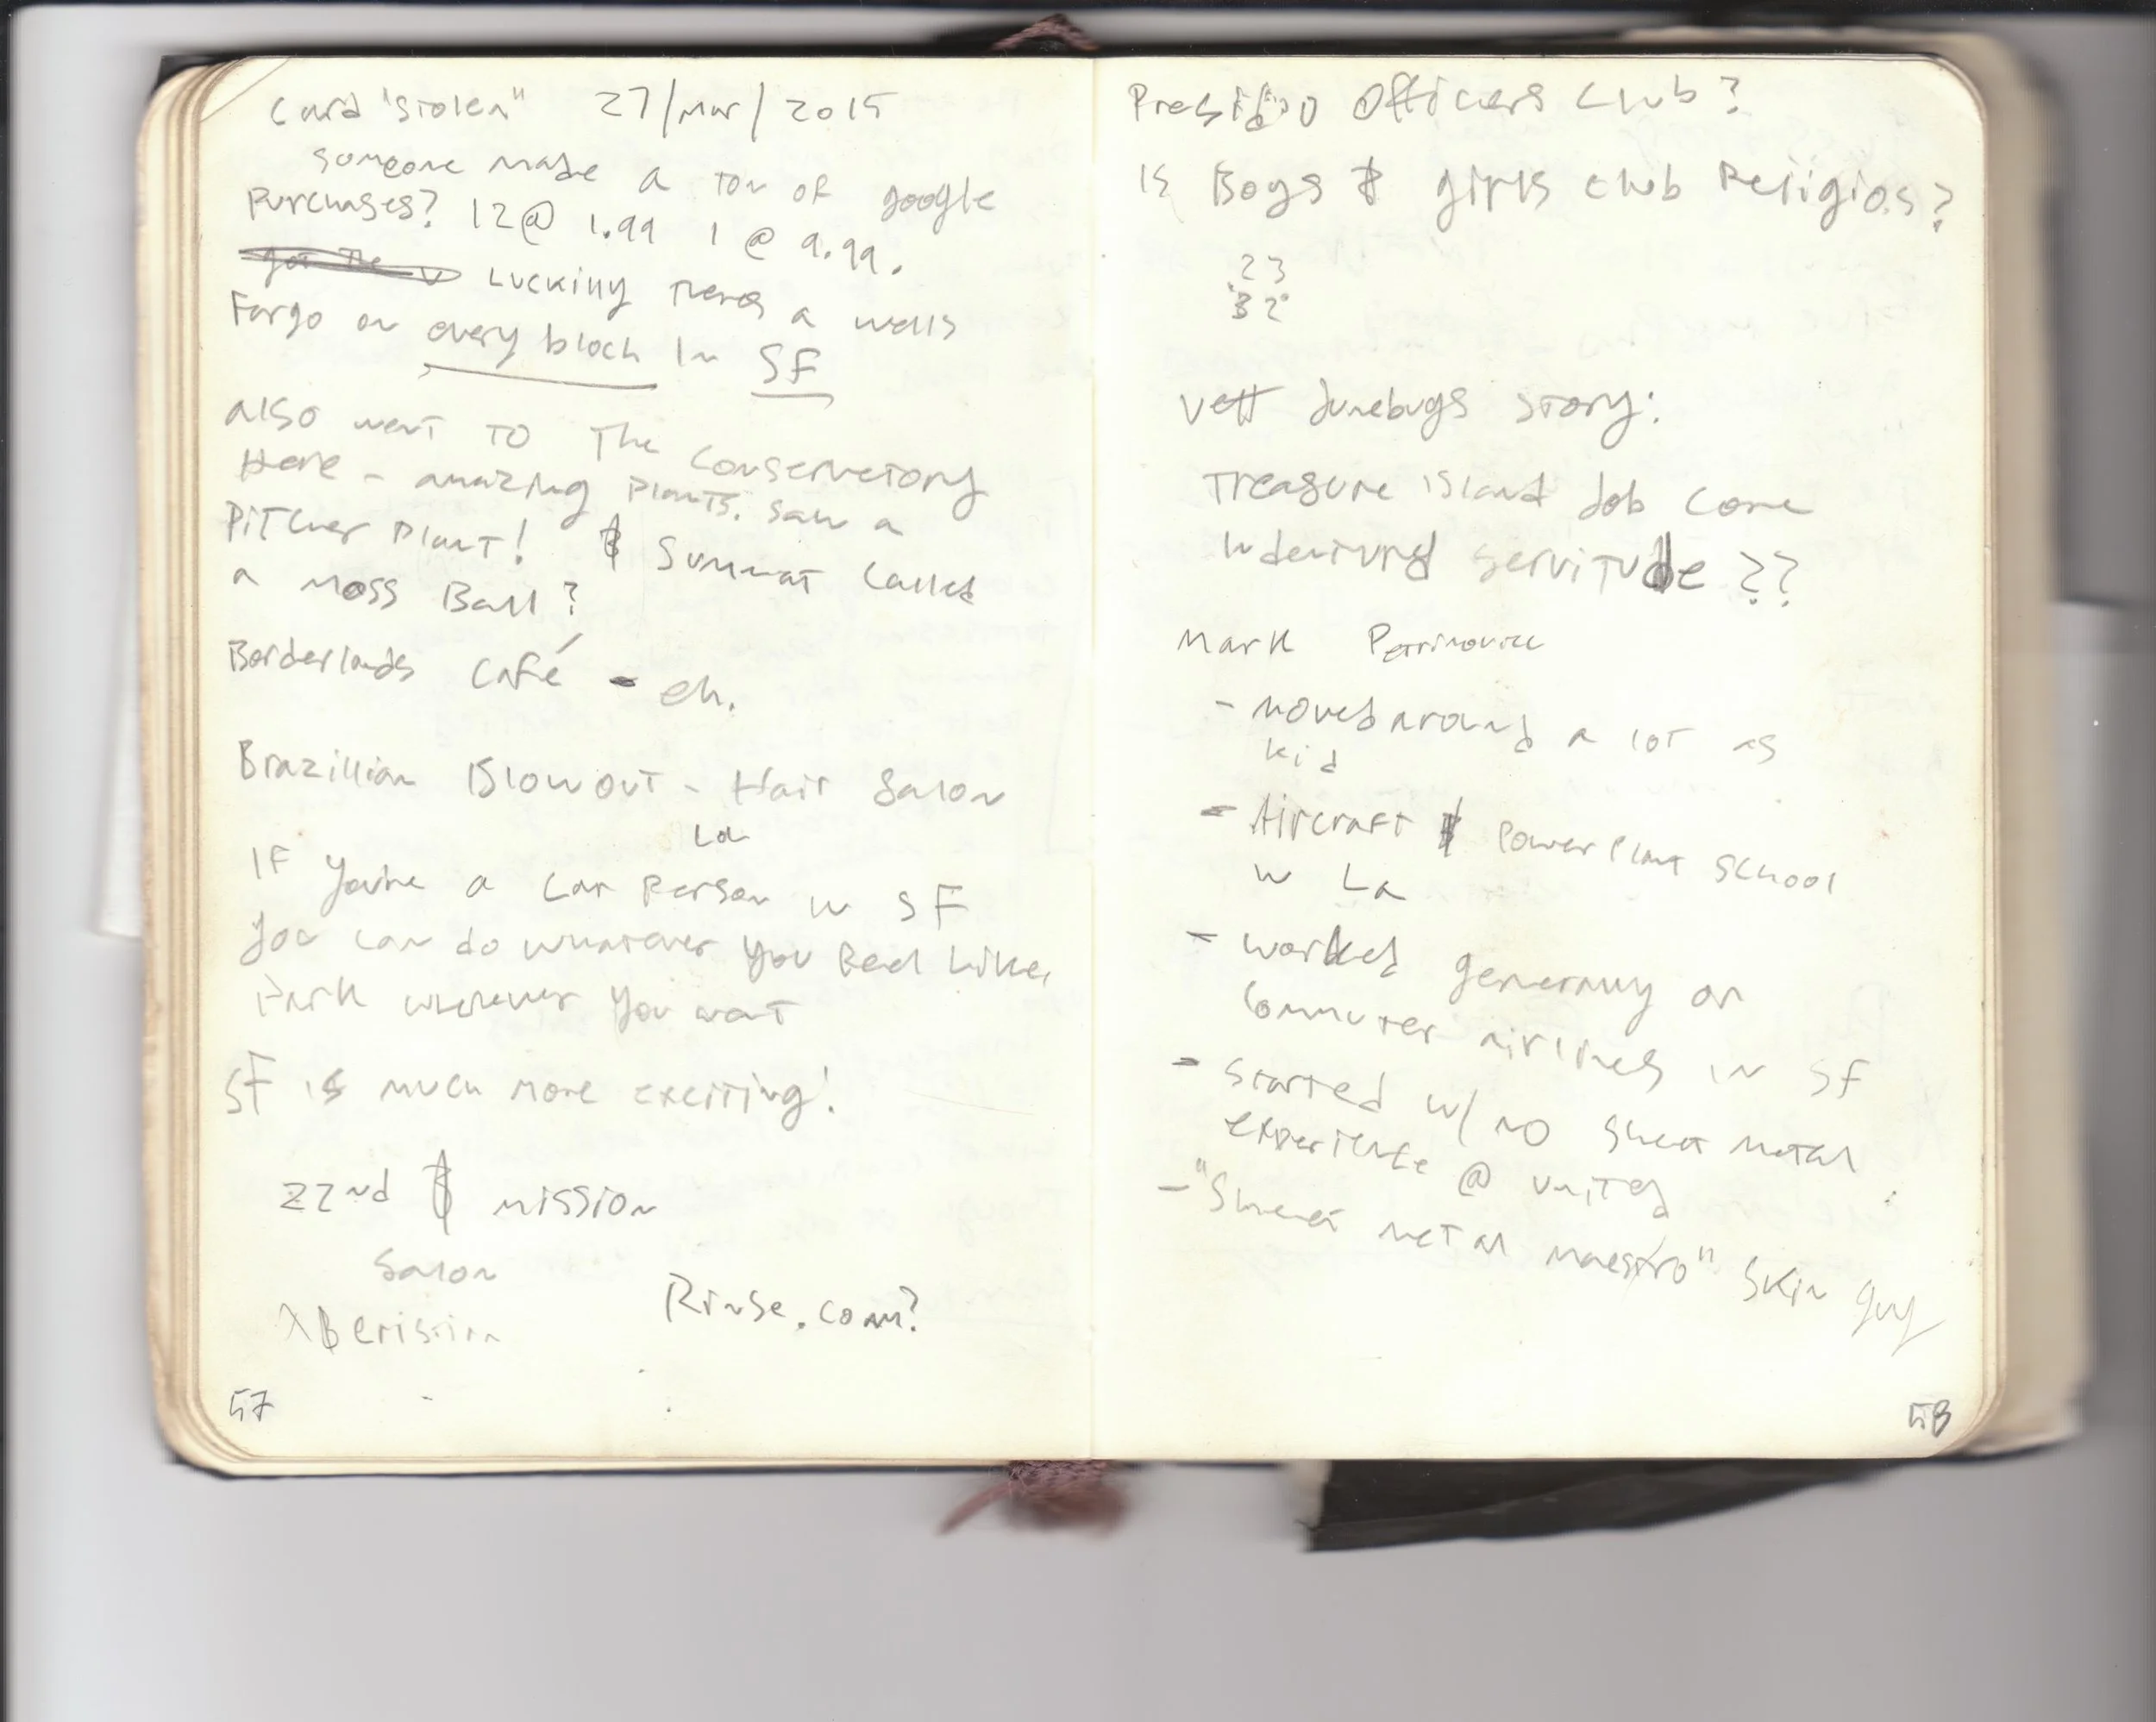 Card "stolen" 27/Mar/2015
someone made a ton of google
Purchases? 12@ 1.99 1 @ 9.99.
Luckily theres a wells
Fargo on every block In SF
also went to The Conservatory
Here - amazing plants. Saw a
Pitcher Plant! & Summat Called
a Moss Ball?
Borderlands Café - eh.
Brazillian Blowout - Hair Salon
La
If you're a car person in SF
you can do whatever you feel like,
Park wherever you want
SF is much more exciting!
22nd & mission
Salon
Rinse.com?
57
Presidio Officers Club?
Is Boys & girls club Religios?
23
32
Vett Junebugs story:
Treasure Island Job Core
Indentured servitude??
Mark
- moved around a lot as
kid
- Aircraft & Power Plant School
in La
- worked generally on
Commuter airlines in SF
- started w/ no sheet metal
experience @ united
- "Sheet metal maestro" skin guy
58